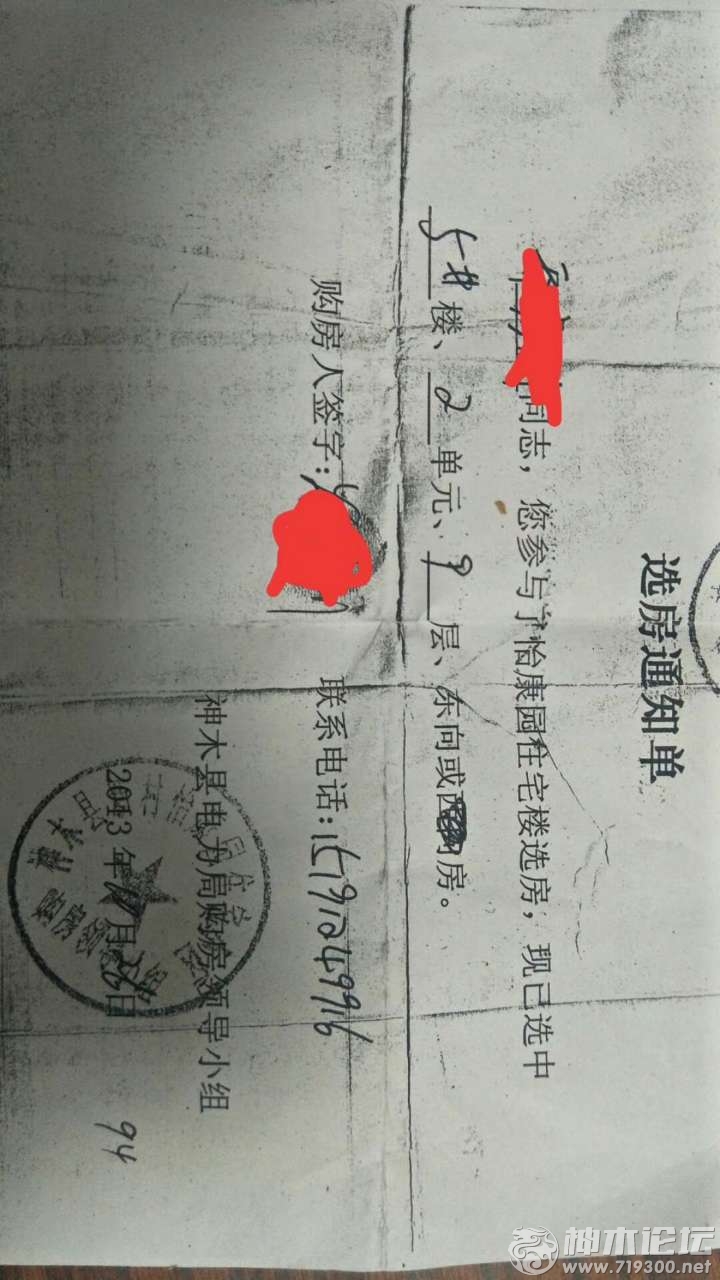 选房通知单
同志，您参与了怡康园住宅楼选房，现已选中
5# 楼、2 单元、9 层、东向或西向房。
购房人签字： 联系电话：15191249916
神木县电力局购房领导小组
2013年 月26日
94
神木论坛
www.719300.net